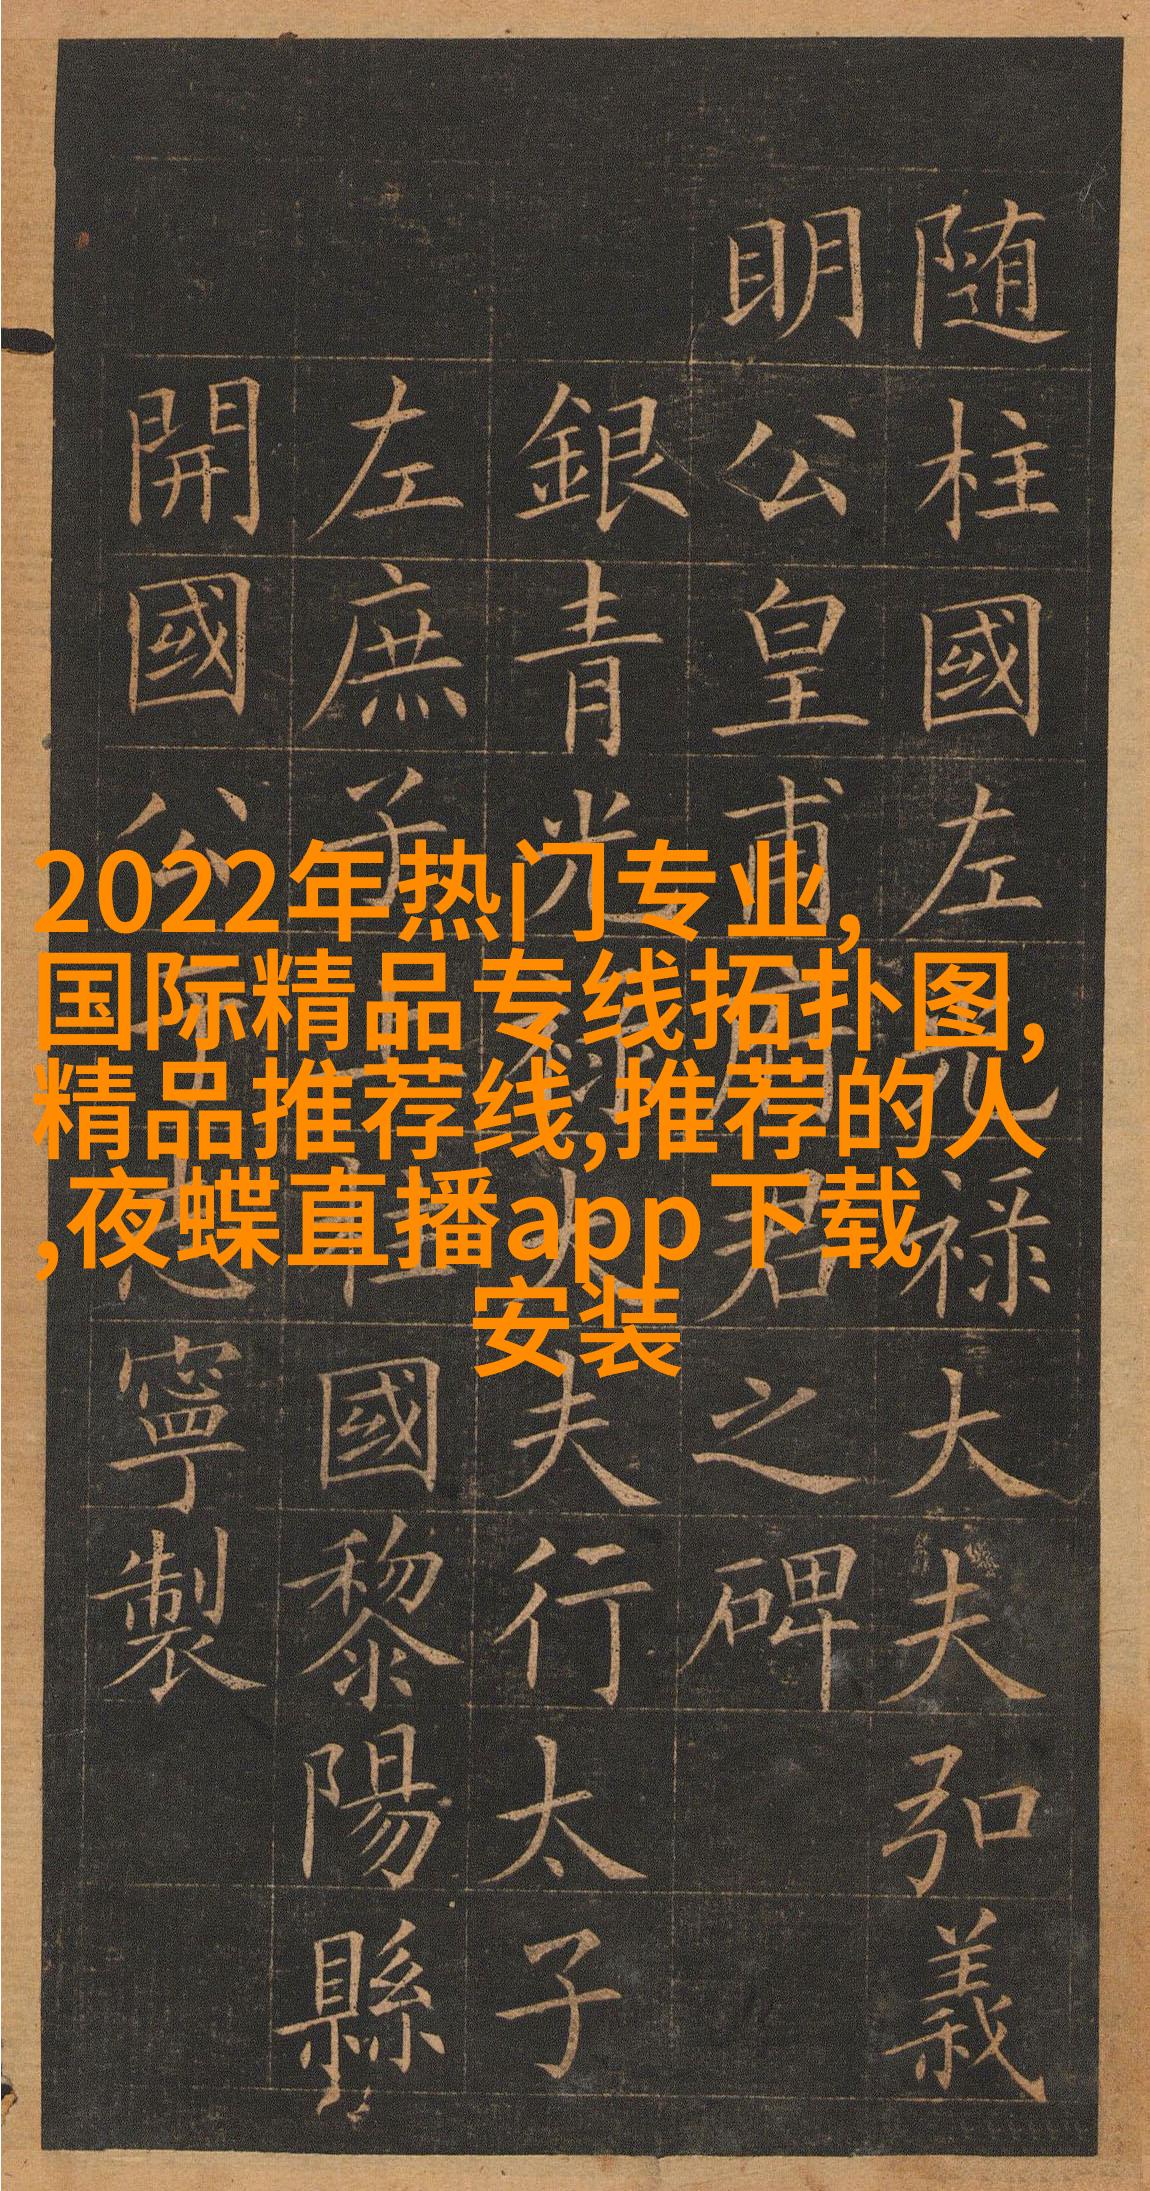 随柱國左光祿大夫弘義
明公皇甫府君之碑
銀青光祿大夫行太子
左庶子上柱國黎陽縣
開國公于志寧製
2022年热门专业,
国际精品专线拓扑图,
精品推荐线,推荐的人
,夜蝶直播app下载
安装